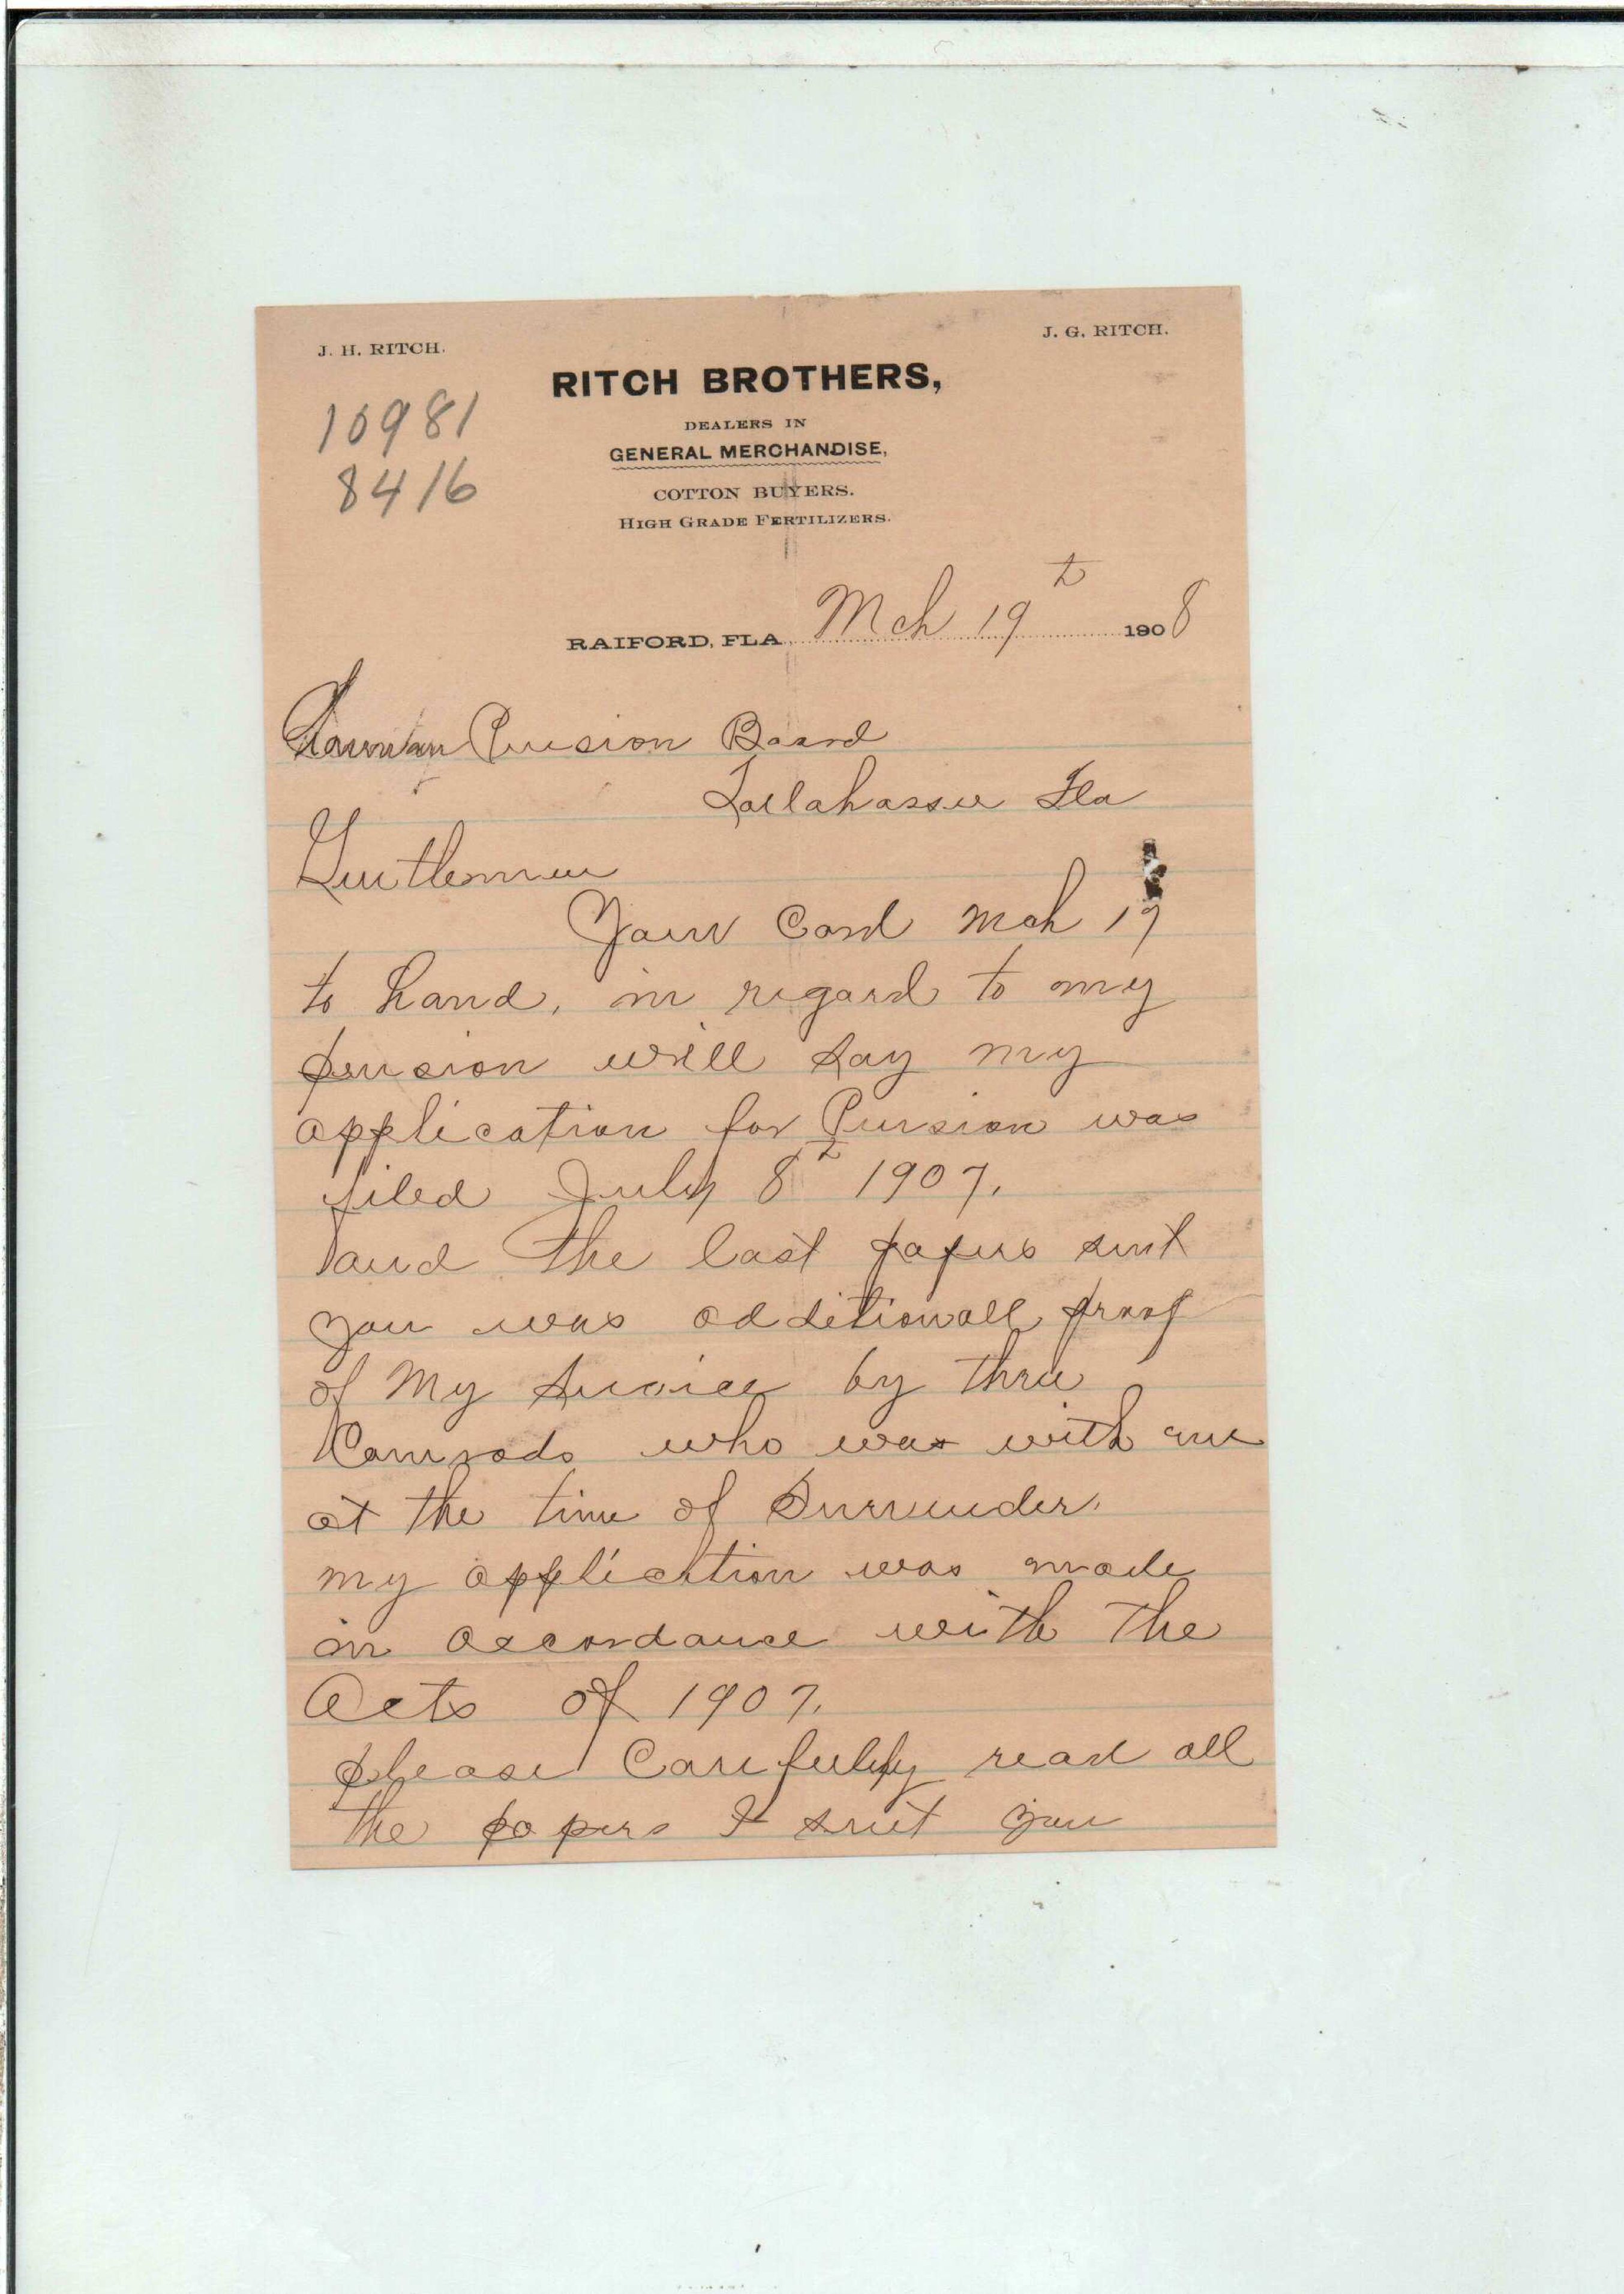 J. H. RITCH.
J. G. RITCH.
RITCH BROTHERS,
10981
DEALERS IN
GENERAL MERCHANDISE,
8416
COTTON BUYERS.
HIGH GRADE FERTILIZERS.
RAIFORD, FLA. Mch 19th 1908
Pension Board
Tallahassee Fla
Gentlemen
Your Card Mch 19
to hand, in regard to my
pension will say my
application for Pension was
filed July 8th 1907.
and the last papers sent
you was additionall proof
of My Service by three
Comrads who was with me
at the time of Surrender.
my application was made
in accordance with the
Acts of 1907.
please Carefully read all
the papers I sent you